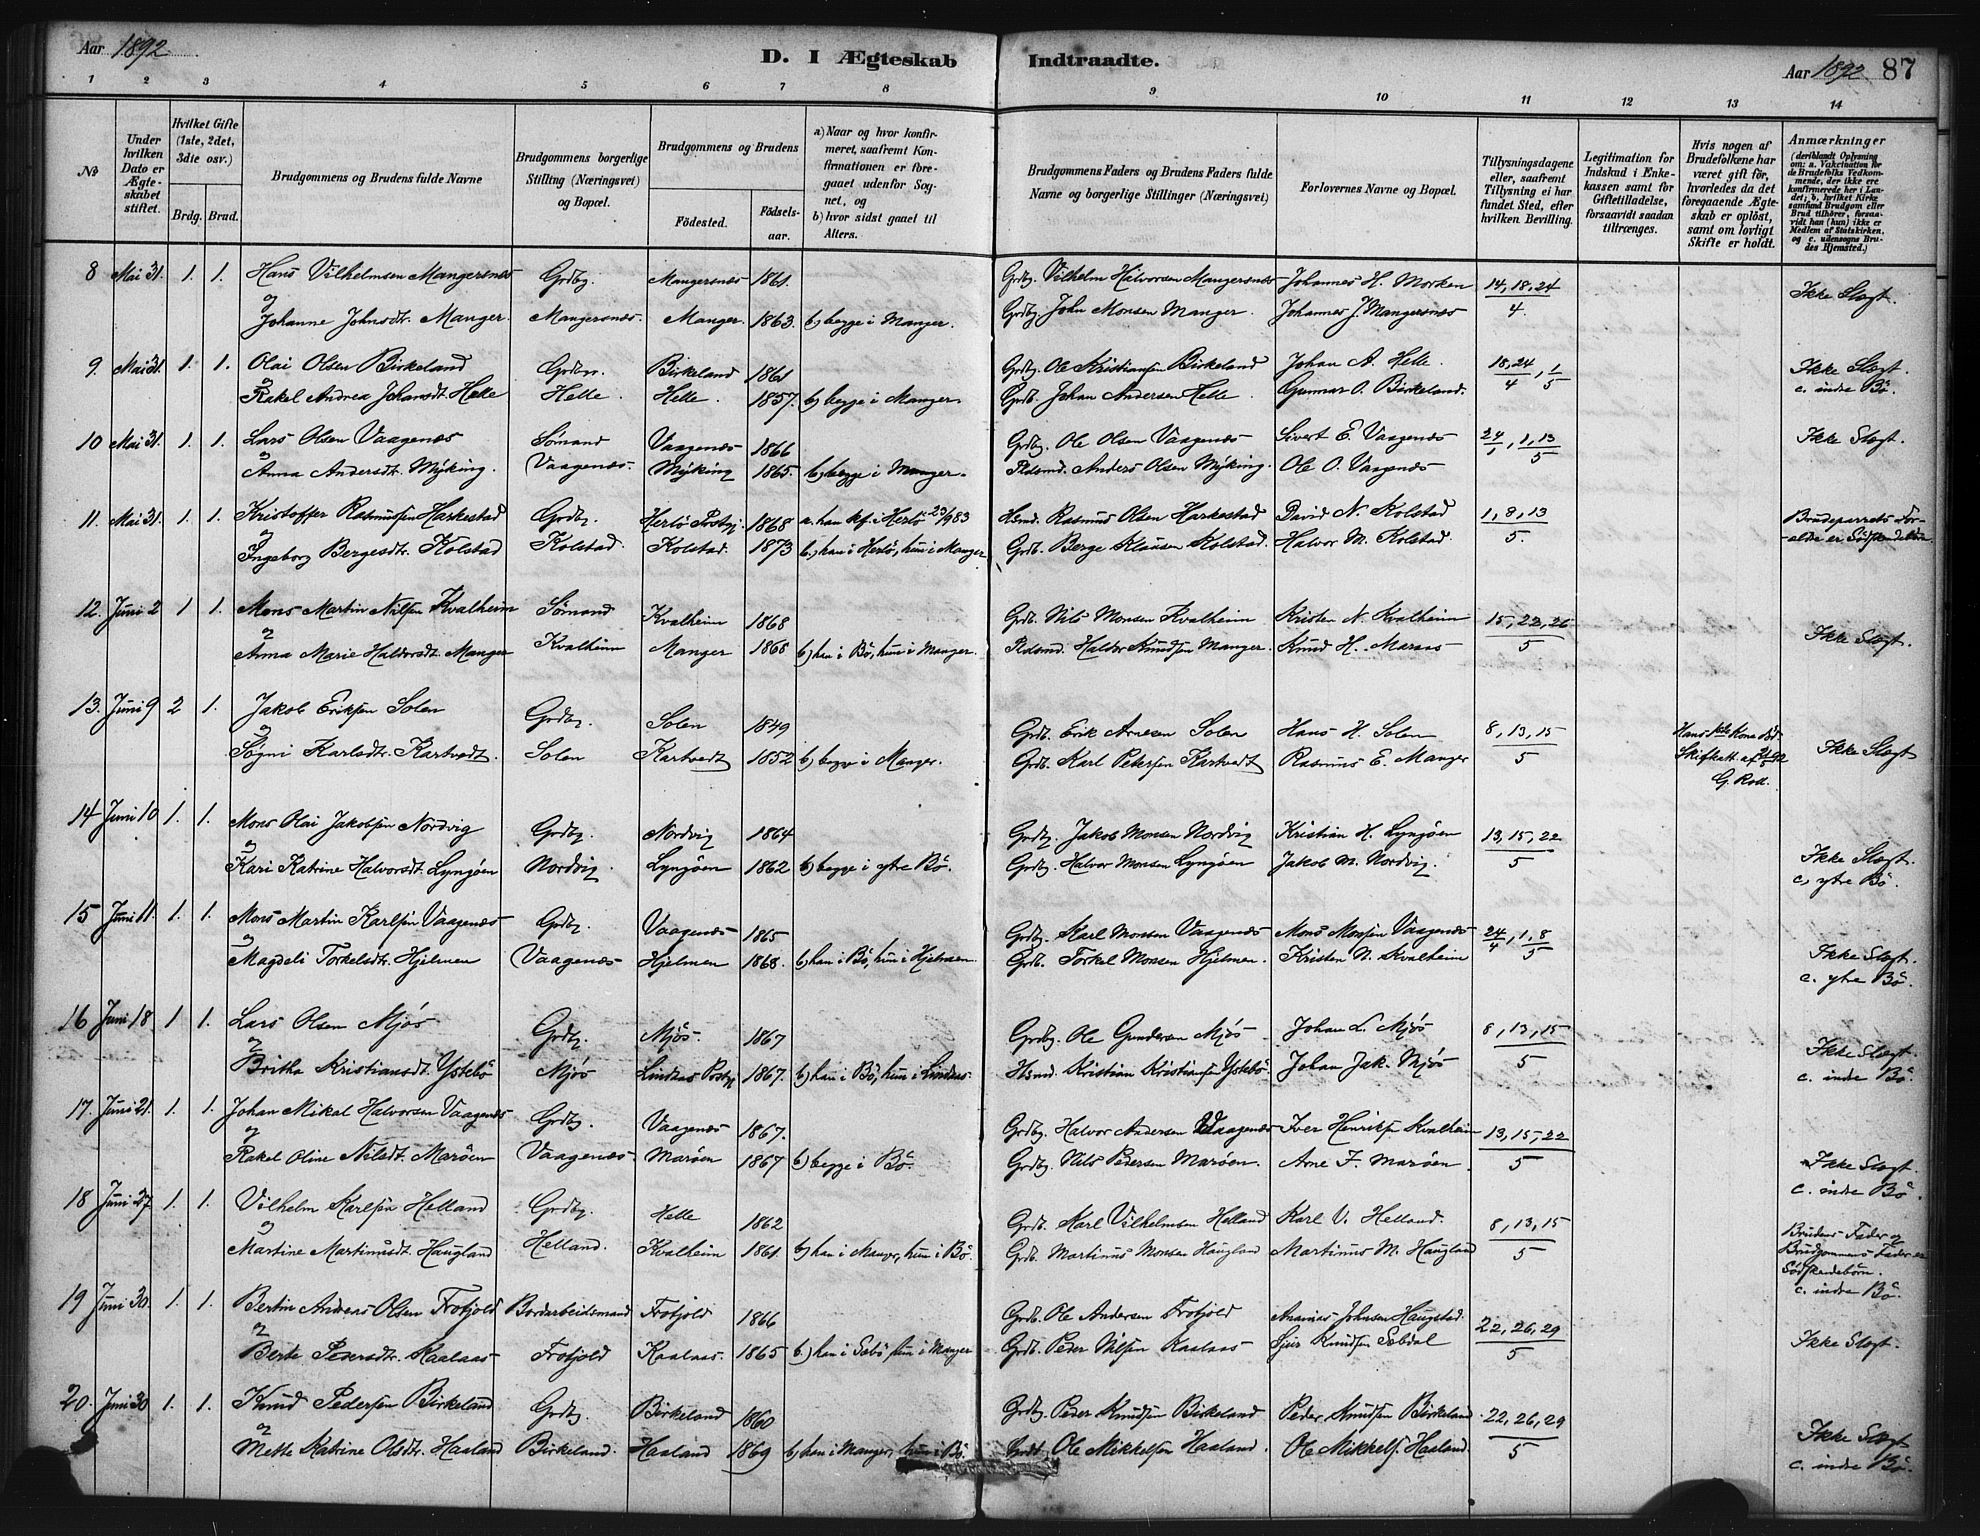 Aar 1892
D. I Ægteskab Indtraadte.
Aar 1892 87
1 2 3 4 5 6 7 8 9 10 11 12 13 14
No
Under hvilken Dato er Ægteskabet stiftet.
Hvilket Gifte (1ste, 2det, 3die osv.)
Brdg. Brud.
Brudgommens og Brudens fulde Navne
Brudgommens borgerlige Stilling (Næringsvei) og Bopæl.
Brudgommens og Brudens
Fødested. Fødselsaar.
a) Naar og hvor konfirmeret, saafremt Konfirmationen er foregaaet udenfor Sognet, og
b) hvor sidst gaaet til Alters.
Brudgommens Faders og Brudens Faders fulde Navne og borgerlige Stillinger (Næringsvei)
Forlovernes Navne og Bopæl.
Tillysningsdagene eller, saafremt Tillysning ei har fundet Sted, efter hvilken Bevilling.
Legitimation for Indskud i Enkekassen samt for Giftetilladelse, forsaavidt saadan tiltrænges.
Hvis nogen af Brudefolkene har været gift før, hvorledes da det foregaaende Ægteskab er opløst, samt om lovligt Skifte er holdt.
Anmærkninger
(deriblandt Oplysning om: a. Vakcination for de Brudefolks Vedkommende, der ikke ere konfirmerede her i Landet; b. hvilket Kirkesamfund Brudgom eller Brud tilhører, forsaavidt han (hun) ikke er Medlem af Statskirken, og c. udensogns Brudes Hjemsted.)
8 Mai 31. 1. 1. Hans Vilhelmsen Mangersnes Grdbg. Mangersnes 1861. Grdbg. Vilhelm Halvorsen Mangersnes Johannes H. Morken 14, 18, 24
og Johanne Johnsdt. Manger. Mangersnes. Manger. 1863. b) begge i Manger. Grdbg. John Monsen Manger. Johannes J. Mangersnes 4. Ikke Slægt.
9. Mai 31. 1. 1. Olai Olsen Birkeland Grdbr. Birkeland 1861 Grdbg. Ole Kristiansen Birkeland Johan A. Helle. 18,24/4, 1/5 Ikke Slægt.
og Rakel Andrea Johansdt. Helle Helle. Helle. 1857. b) begge i Manger. Grdb. Johan Andersen Helle Gunnar O. Birkeland. c. indre Bö.
10 Mai 31. 1. 1. Lars Olsen Vaagenæs Sömand Vaagenæs 1866 Grdbg. Ole Olsen Vaagenæs Sivert E. Vaagenæs 24, 1, 13 Ikke Slægt.
og Anna Andersdt. Myking. Vaagenæs. Myking 1865. b) begge i Manger. Pldsmd. Anders Olsen Myking. Ole O. Vaagenæs 5
11. Mai 31. 1. 1. Kristoffer Rasmussen Harkestad Grdbg. Herlö Prstgj. 1868 a. han kf. i Herlö 23/9 83 Hsmd. Rasmus Olsen Harkestad David N. Kolstad 1, 8, 13 Brudeparrets For-
og Ingeborg Bergesdt. Kolstad Kolstad. Kolstad. 1873 b.) han i Herlö, hun i Manger Grdb. Berge Klausen Kolstad. Halvor M. Kolstad. 5. -ældre er Södskendebörn.
12. Juni 2 1 1. Mons Martin Nilsen Kvalheim Sömand Kvalheim 1868 Grdb. Nils Monsen Kvalheim Kristen N. Kvalheim 15, 22, 26
og Anna Marie Haldorsdt. Manger Kvalheim Manger 1868 b) han i Bö, hun i Manger. Pldsmd. Haldor Knudsen Manger. Knud H. Maraas 5 Ikke Slægt.
13. Juni 9 2 1. Jakob Eriksen Solen Grdbg. Solen 1849 Grdb. Erik Arnesen Solen Hans H. Solen 8, 13, 15 Hans 1ste Kone
og Søgni Karlsdt. Kartvedt. Solen Kartvedt 1852 b) begge i Manger. Grdb. Karl Petersen Kartvedt Rasmus E. Manger 5 Skifteatt. af Ikke Slægt
14 Juni 10 1. 1. Mons Olai Jakobsen Nordvig Grdbg. Nordvig 1864 Grdbg. Jakob Monsen Nordvig Kristian H. Lyngöen 13, 15, 22
og Kari Katrine Halvorsdt. Lyngöen Nordvig. Lyngöen 1862 b) begge i ytre Bö. Grdbg. Halvor Monsen Lyngöen Jakob M. Nordvig. 5 Ikke Slægt. c, ytre Bö.
15 Juni 11. 1. 1. Mons Martin Karlsen Vaagenæs Grdbg. Vaagenæs 1865 Grdbg. Karl Monsen Vaagenæs Mons Monsen Vaagenæs 24/4, 1,8/5
og Magdeli Torkelsdt. Hjelmen Vaagenæs Hjelmen 1868. b) han i Bö, hun i Hjelmen. Grdb. Torkel Monsen Hjelmen. Kristen N. Kvalheim Ikke Slægt. c. ytre Bö.
16 Juni 18 1 1. Lars Olsen Mjös Grdbg. Mjös. 1867 Grdbg. Ole Gundersen Mjös Johan L. Mjös 8, 13, 15
og Britha Kristiansdt. Ystebö Mjös Lindaas Prstgj. 1867. b) han i Bö, hun i Lindaas. Hsmd. Kristian Kristiansen Ystebö. Johan Jak. Mjös 5 Ikke Slægt. c. indre Bö.
17. Juni 21. 1. 1. Johan Mikal Halvorsen Vaagenæs Grdbg. Vaagenæs 1867. Grdbg. Halvor Andersen Vaagenæs Iver Henriksen Kvalheim 13, 15, 22
og Rakel Oline Nilsdt. Maröen Vaagenæs. Maröen 1867 b) begge i Bö. Grdbg. Nils Pedersen Maröen. Arne F. Maröen. 5 Ikke Slægt. c. indre Bö
18 Juni 27 1. 1. Vilhelm Karlsen Helland Grdbg. Helle 1862 Grdb. Karl Vilhelmsen Helland Karl V. Helland. 8, 13, 15 Brudens Fader og
og Martine Martinusdt. Haugland Helland. Kvalheim 1861. b) han i Manger, hun i Bö. Grdb. Martinus Monsen Haugland Martinus M. Haugland 5 Brudgommens Fader er Södskendebörn. c. indre Bö.
19 Juni 30. 1. 1. Bertin Andreas Olsen Frotjold Bordarbeidsmand Frotjold 1866 Grdb. Ole Andersen Frotjold Ananias Johnsen Haugstad. 22, 26, 29
og Berte Pedersdt. Kaalaas Frotjold Kaalaas. 1865 b.) han i Sæbö hun i Manger Grdb. Peder Nilsen Kaalaas Sjur Knudsen Sebdal 5 Ikke Slægt.
20. Juni 30 1. 1. Knud Pedersen Birkeland Grdbg. Birkeland 1860 Grdbg. Peder Knudsen Birkeland Peder Knudsen Birkeland 22, 26, 29
og Mette Katrine Olsdt. Haaland Birkeland. Haaland 1869 b) han i Manger, hun i Bö. Grdb. Ole Mikkelsen Haaland. Ole Mikkels. Haaland. 5 Ikke Slægt c. indre Bö.